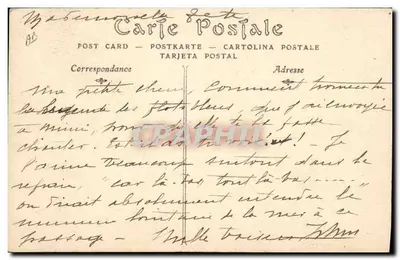 Mademoiselle
Carte Postale
POST CARD — POSTKARTE — CARTOLINA POSTALE
TARJETA POSTAL
Correspondance Adresse
Ma petite chère, Comment trouves-tu
la des flots bleus, que j'ai envoyée
à Mimi, pour qu'elle te la fasse
chanter. Est-ce Je
l'aime beaucoup surtout dans le
refrain, "car là-bas tout là-bas
on dirait absolument entendre le
murmure lointain de la mer à ce
passage — Mille baisers
CPARAMA